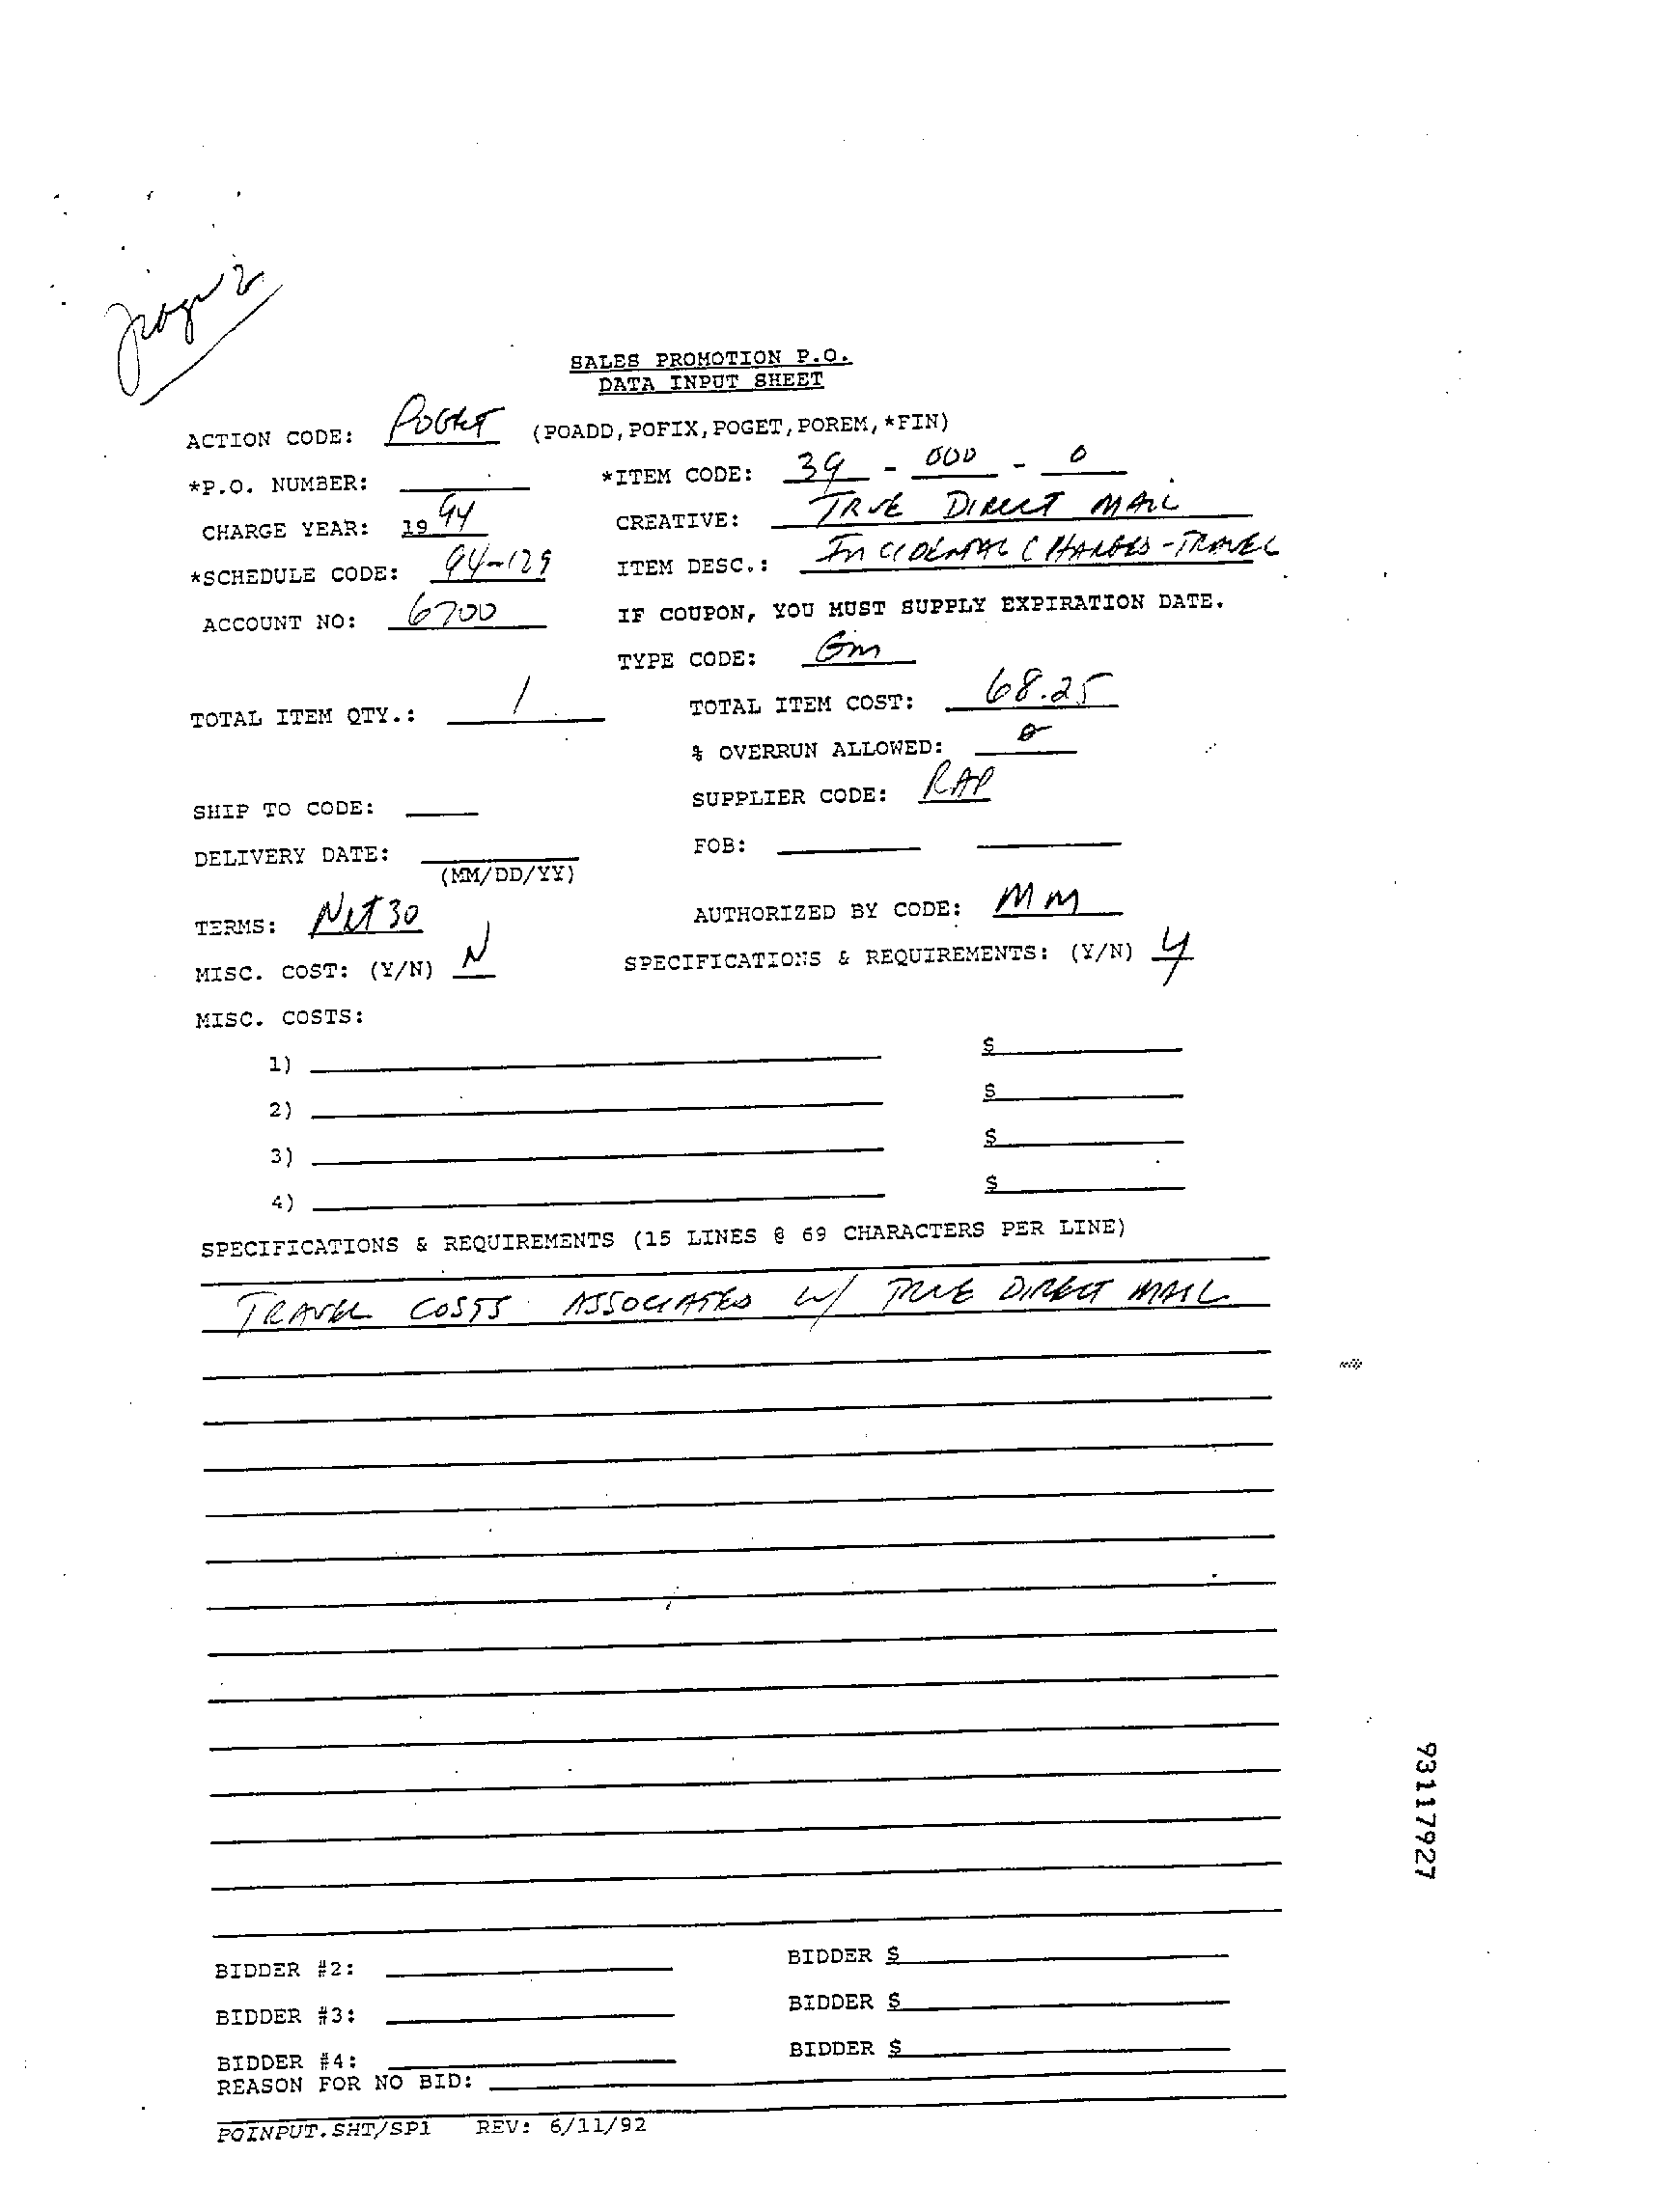 SALES PROMOTION P.O.
DATA INPUT SHEET
ACTION CODE: POGET (POADD,POFIX,POGET,POREM,*FIN)
*P.O. NUMBER: *ITEM CODE: 39 - 000 - 0
CHARGE YEAR: 19 94 CREATIVE: TRUE DIRECT MAIL
*SCHEDULE CODE: 94-129 ITEM DESC.: INCIDENTAL CHARGES-TRAVEL
ACCOUNT NO: 6700 IF COUPON, YOU MUST SUPPLY EXPIRATION DATE.
TYPE CODE: Gm
TOTAL ITEM QTY.: 1 TOTAL ITEM COST: 68.25
% OVERRUN ALLOWED: 0
SHIP TO CODE: SUPPLIER CODE: RAP
DELIVERY DATE: FOB:
(MM/DD/YY)
TERMS: Net 30 AUTHORIZED BY CODE: MM
MISC. COST: (Y/N) N SPECIFICATIONS & REQUIREMENTS: (Y/N) Y
MISC. COSTS:
1) $
2) $
3) $
4) $
SPECIFICATIONS & REQUIREMENTS (15 LINES @ 69 CHARACTERS PER LINE)
TRAVEL COSTS ASSOCIATED W/ TRUE DIRECT MAIL
BIDDER #2: BIDDER $
BIDDER #3: BIDDER $
BIDDER #4: BIDDER $
REASON FOR NO BID:
POINPUT.SHT/SP1 REV: 6/11/92
93117927